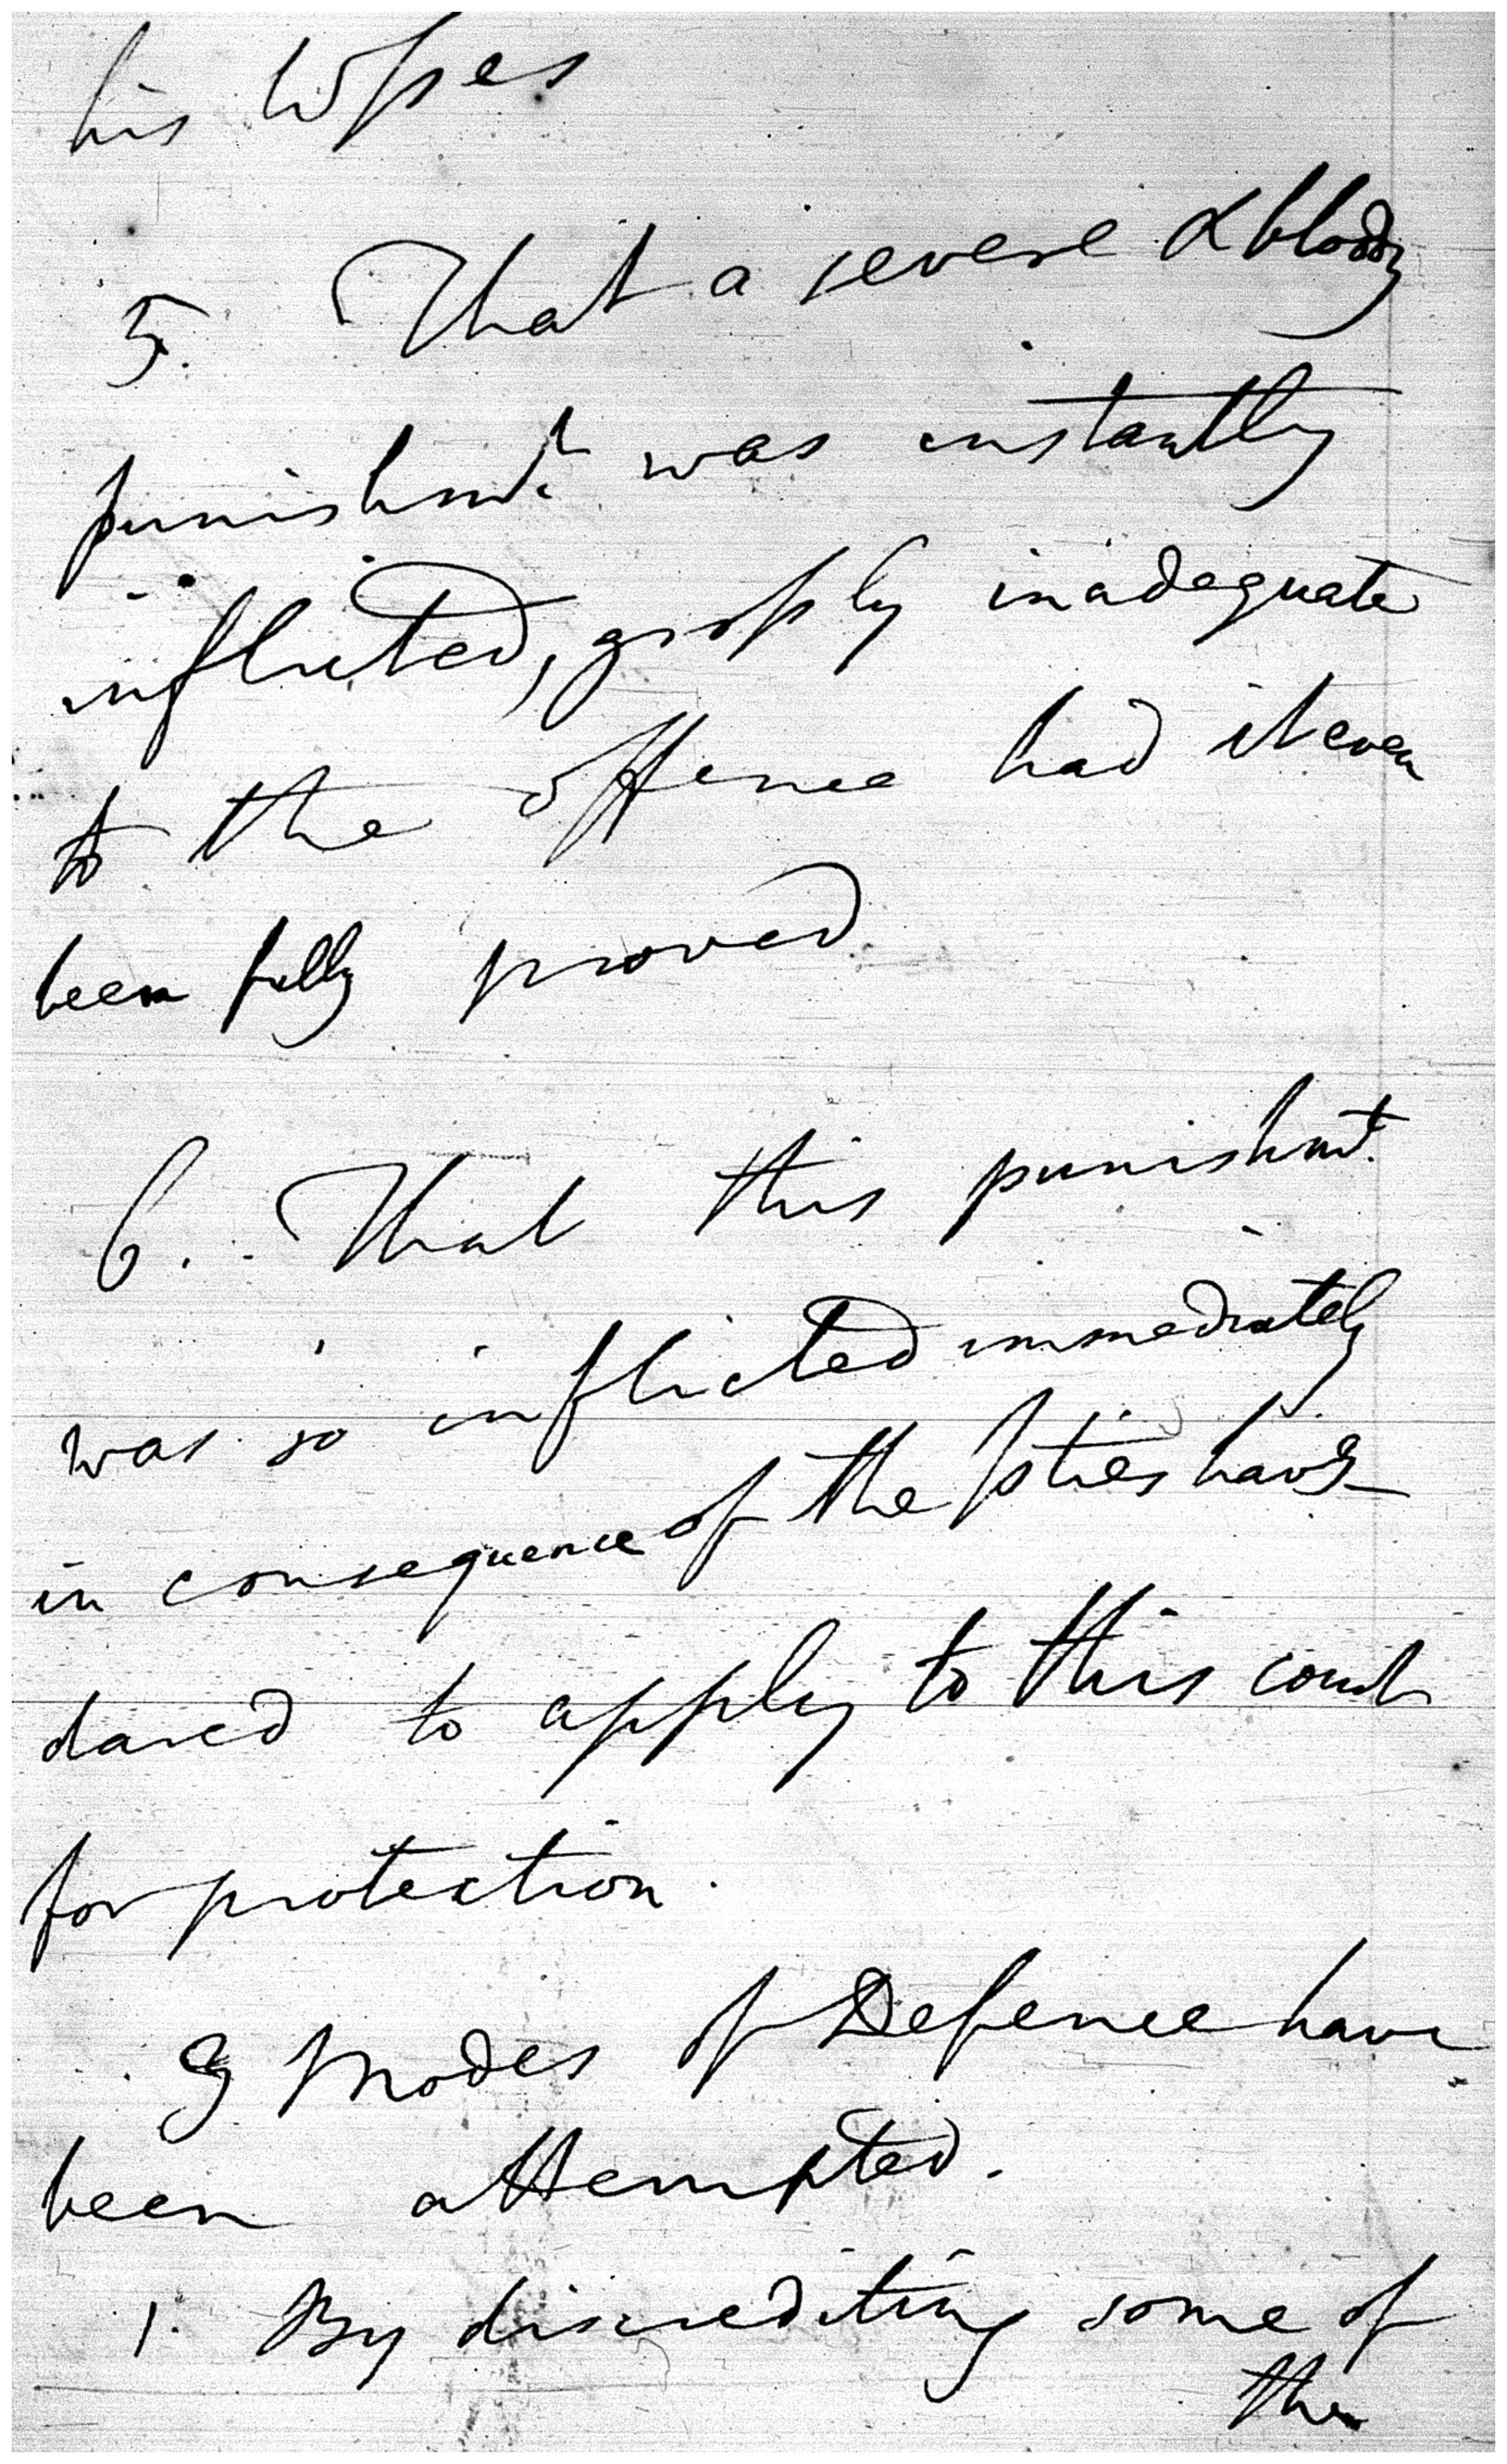 his losses
5. That a severe & bloody
punishmt. was instantly
inflicted, grossly inadequate
to the offence had it even
been fully proved
6. That this punishmt.
was so inflicted immediately
in consequence of the Pties havg
dared to apply to this court
for protection.
3 Modes of Defence have
been attempted.
1. By discrediting some of
the